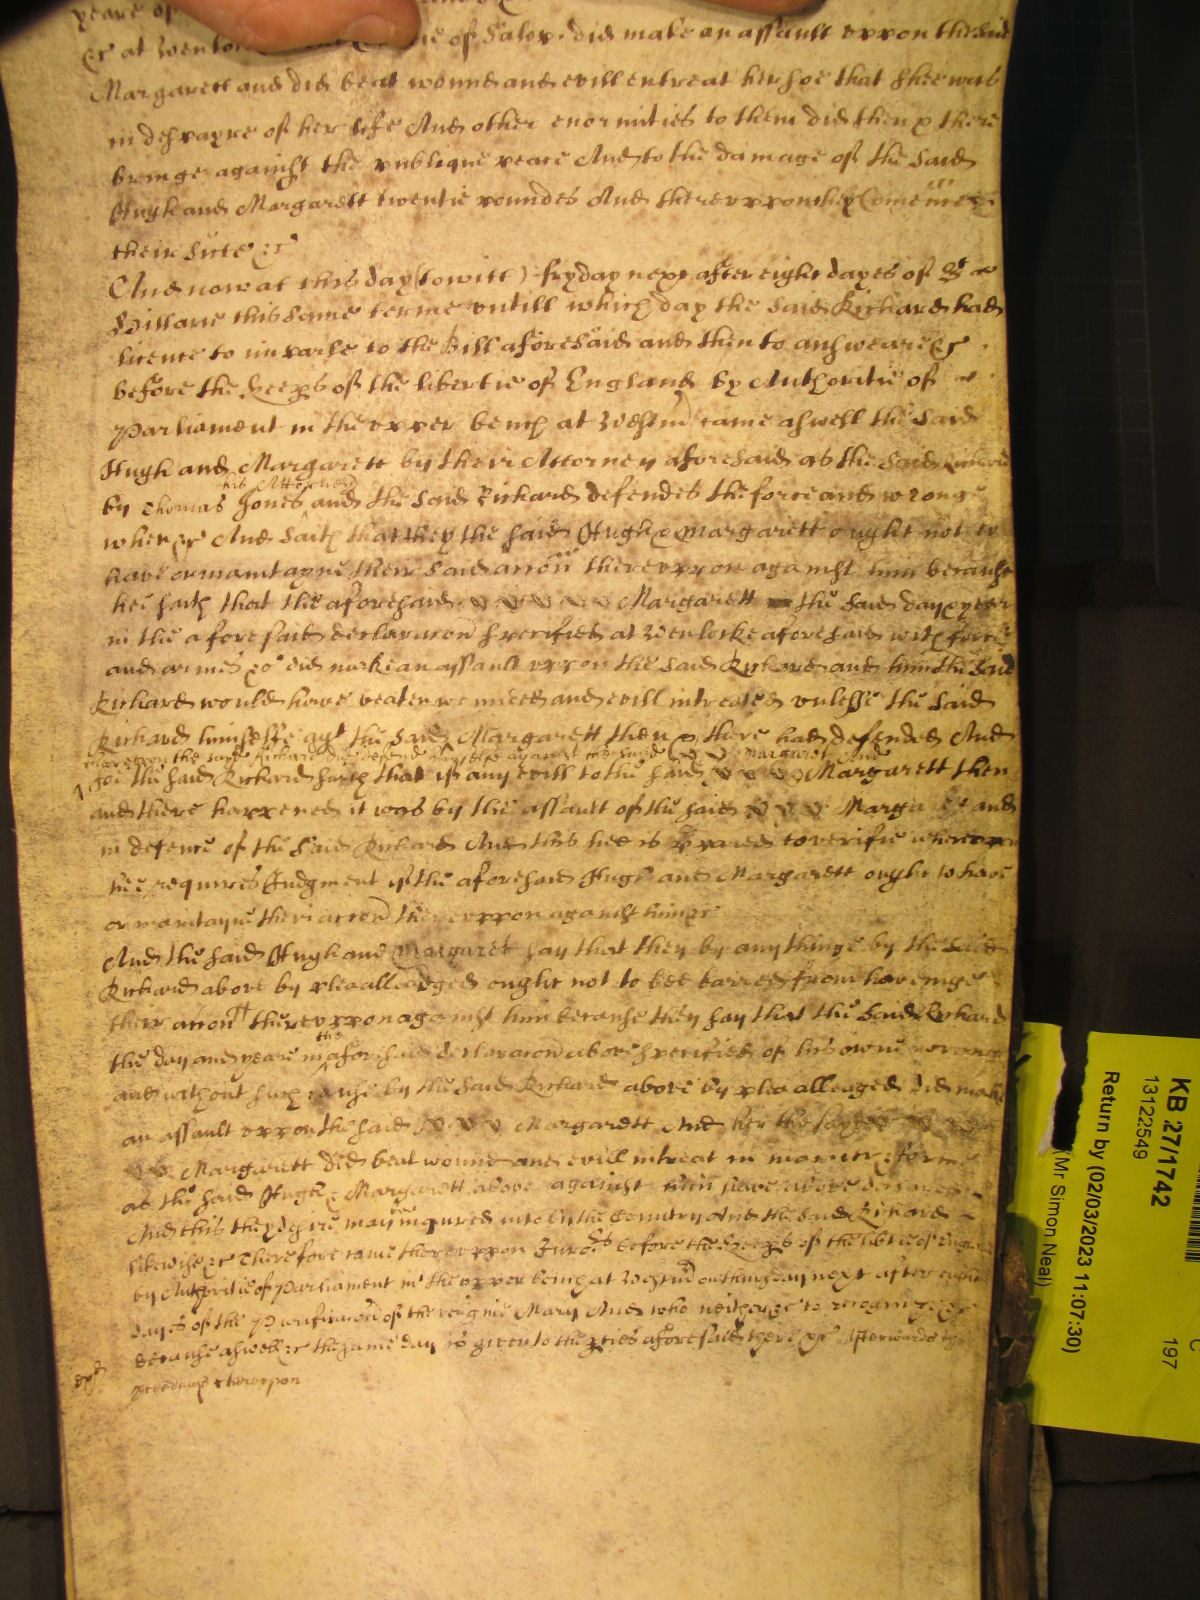 yeare of
&c at Wenlock of Salop did make an assault uppon the said
Margarett and did beat wound and evill entreat her soe that shee was
in dispayre of her life And other enormities to them did then & there
bringe against the publique peace And to the damage of the said
Hugh and Margarett twentie poundes And thereuppon they
their sute &c
And now at this day (to witt) fryday next after eight dayes of St
Hillarie this same terme untill which day the said Richard had
licence to imparle to the Bill aforesaid and then to answeare &c
before the Keeps of the libertie of England by Authoritie of
Parliament in the upper bench at Westm came aswell the said
Hugh and Margarett by their Attorney aforesaid as the said Richard
his Attorney
by Thomas Jones and the said Richard defendes the force and wronge
when &c And saith that they the said Hugh & Margarett ought not to
have or maintayne their said accon thereuppon against him because
hee saith that the aforesaid Margarett the said day & yeer
in the aforesaid declaracon specified at Wenlocke aforesaid with force
and armes &c did make an assault uppon the said Richard and him the said
Richard would have beaten wounded and evill intreated unlesse the said
Richard himselfe agt the said Margarett then & there had defended And
thereupon the said Richard did defend himselfe against the said Margaret And
soe the said Richard saith that if any evill to the said Margarett then
and there happened it was by the assault of the said Margarett and
in defence of the said Richard And this hee is ready to verifie whereupon
hee requires Judgment if the aforesaid Hugh and Margarett ought to have
or maintayne their accon thereuppon against him &c
And the said Hugh and Margaret say that they by any thinge by the said
Richard above by plea alleadged ought not to bee barred from havinge
their accon thereuppon against him because they say that the said Richard
the
the day and yeare in aforesaid declaracon above specified of his owne wronge
and without such cause by the said Richard above by plea alleaged did make
an assault uppon the said Margarett And her the said
Margarett did beat wound and evill intreat in manner & forme
as the said Hugh & Margarett above against him have above
And this they desire may inquired into by the Country And the said Richard
likewise &c Therefore came thereuppon Jurors before the Keeps of the libtie of England
by Authoritie of Parliament in the upper bench at Westm on thursday next after eight
dayes of the Purificacon of the virgine Mary And who neither &c to recognize &c
because aswell &c the same day is given to the pties aforesaid there &c Afterwards the
pceedings thereupon
KB 27/1742
13122549
Return by (02/03/2023 11:07:30)
(Mr Simon Neal)
C
197